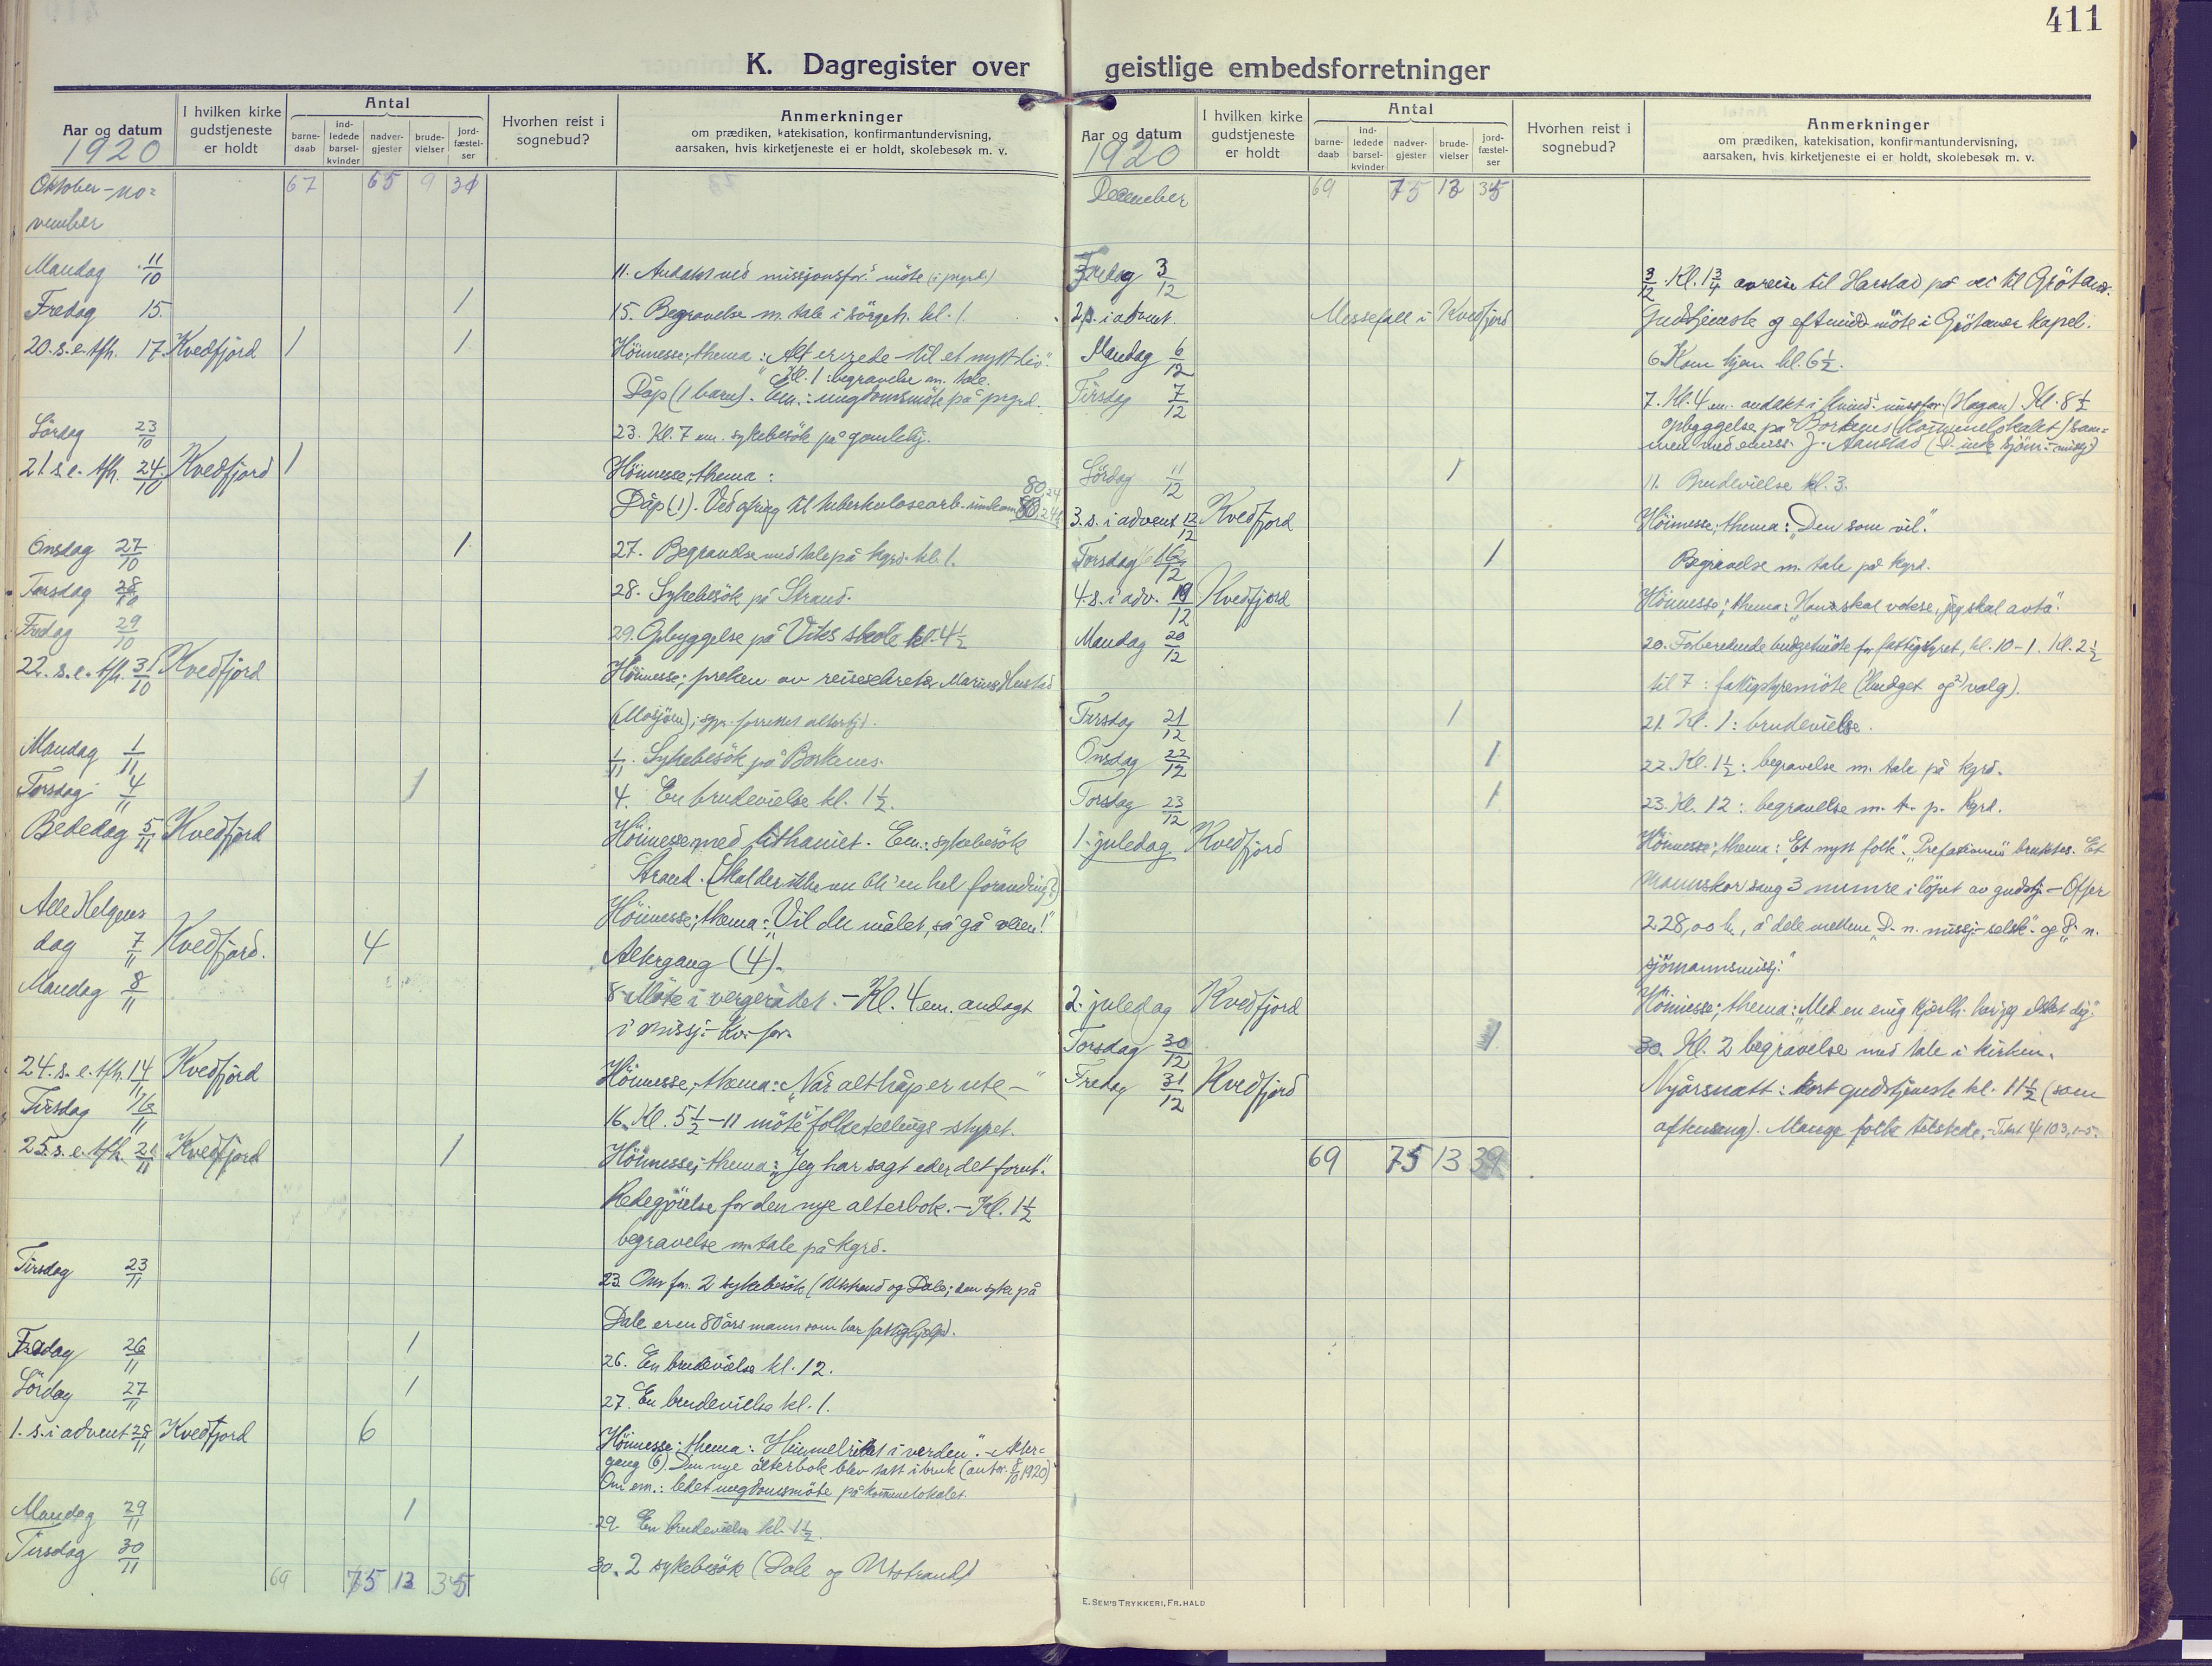 411
K. Dagregister over geistlige embedsforretninger
Aar og datum
1920
I hvilken kirke gudstjeneste er holdt
Antal
barne-daab
ind-ledede barsel-kvinder
nadver-gjester
brude-vielser
jord-fæstel-ser
Hvorhen reist i sognebud?
Anmerkninger
om prædiken, katekisation, konfirmantundervisning,
aarsaken, hvis kirketjeneste ei er holdt, skolebesøk m. v.
Oktober-no= 67 65 9 31
vember
Mandag 11/10 11. Andakt ved missjonsfor.s möte (i prgrd.)
Fredag 15. 1 15. Begravelse m. tale i sörgeh. kl. 1.
20. s. e. tfh. 17. Kvedfjord 1 1 Höimesse; thema: "Alt er rede til et nytt liv".
Kl. 1: begravelse m. tale.
Dåp (1 barn). Em.: ungdomsmöte på prgrd.
Lördag 23/10 23. Kl. 7 em. sykebesök på gamlehj.
21 s. e. tfh. 24/10 Kvedfjord 1 Höimesse; thema:
Dåp (1). Ved ofring til tuberkulosearb. innkom 80,24
Onsdag 27/10 1 27. Begravelse med tale på kgrd. kl. 1.
Torsdag 28/10 28. Sykebesök på Strand.
Fredag 29/10 29. Opbyggelse på Viks skole kl. 4 1/2
22. s. e. tfh. 31/10 Kvedfjord Höimesse; preken av reisesekretær Marius Hustad
(Mosjöen); spr. forrettet altertj.
Mandag 1/11 1/11. Sykebesök på Borkenes.
Torsdag 4/11 1 4. En brudevielse kl. 1 1/2.
Bededag 5/11 Kvedfjord Höimesse med lithaniet. Em.: sykebesök
Strand. (Skal der ikke nu bli en hel forandring?)
Alle Helgens
dag 7/11 Kvedfjord. 4 Höimesse; thema: "Vil du målet, så gå veien!"
Altergang (4).
Mandag 8/11 8. Möte i vergerådet. - Kl. 4 em. andagt
i missj. Kv. for.
24. s. e. tfh. 14/11 Kvedfjord Höimesse; thema: "Når alt håp er ute -"
Tirsdag 16/11 16. Kl. 5 1/2 - 11 möte i folketellings styret.
25. s. e. tfh. 21/11 Kvedfjord 1 Höimesse; thema: "Jeg har sagt eder det forut".
Redegjörelse for den nye alterbok. - Kl. 1 1/2
begravelse m. tale på kgrd.
Tirsdag 23/11 23. Om fm. 2 sykebesök (Utstrand og Dale; den syke på
Dale er en 80 års mann som har fattighjelp).
Fredag 26/11 1 26. En brudevielse kl. 12.
Lördag 27/11 1 27. En brudevielse kl. 1.
1. s. i advent 28/11 Kvedfjord 6 Höimesse; thema: "Himmelriket i verden". - Alter=
gang (6). Den nye alterbok blev tatt i bruk (autor. 8/10 1920)
Om em.: ledet ungdomsmöte på kommunelokalet.
Mandag 29/11 1 29. En brudevielse kl. 1 1/2.
Tirsdag 30/11 30. 2 sykebesök (Dale og Utstrand)
69 75 13 35
Aar og datum
1920
I hvilken kirke gudstjeneste er holdt
Antal
barne-daab
ind-ledede barsel-kvinder
nadver-gjester
brude-vielser
jord-fæstel-ser
Hvorhen reist i sognebud?
Anmerkninger
om prædiken, katekisation, konfirmantundervisning,
aarsaken, hvis kirketjeneste ei er holdt, skolebesøk m. v.
December 69 75 13 35
Fredag 3/12 3/12. Kl. 1 3/4 avreise til Harstad på vei til Grötavær.
2. s. i advent. Messefall i Kvedfjord Gudstjeneste og eftmidd. möte i Grötavær kapel.
Mandag 6/12 6. Kom hjem kl. 6 1/2.
Tirsdag 7/12 7. Kl. 4 em. andakt i kvind. missfor. (Hagan). Kl. 8 1/2
opbyggelse på Borkenes (Kommunelokalet) sam=
men med emiss. J. Aanstad (D. indr. sjöm. missj.)
Lördag 11/12 1 11. Brudevielse kl. 3.
3. s. i advent 12/12 Kvedfjord Höimesse; thema: "Den som vil".
Torsdag 16/12 1 Begravelse m. tale på kgrd.
4. s. i adv. 19/12 Kvedfjord Höimesse; thema: "Han skal vokse, jeg skal avta".
Mandag 20/12 20. Forberedende budgetmöte for fattigstyret, kl. 10-1. Kl. 2 1/2
til 7: fattigstyremöte (1) budget og 2) valg).
Tirsdag 21/12 1 21. Kl. 1: brudevielse.
Onsdag 22/12 1 22. Kl. 1 1/2: begravelse m. tale på kgrd.
Torsdag 23/12 1 23. Kl. 12: begravelse m. t. p. kgrd.
1. juledag Kvedfjord Höimesse; thema: "Et nytt folk". "Prefasjonen" bruktes. Et
mannskor sang 3 numre i löpet av gudstj. - Offer
228,00 kr., å dele mellem "D. n. missj. selsk." og "D. n.
sjömannsmissj."
2. juledag Kvedfjord Höimesse; thema: "Med en evig kjærlh. har jeg elsket dig".
Torsdag 30/12 1 30. Kl. 2 begravelse med tale i kirken.
Fredag 31/12 Kvedfjord Nyårsnatt: kort gudstjeneste kl. 11 1/2 (som
aftensang). Mange folk tilstede. - Tekst 103, 1-5.
69 75 13 39
E. SEM'S TRYKKERI, FR.HALD